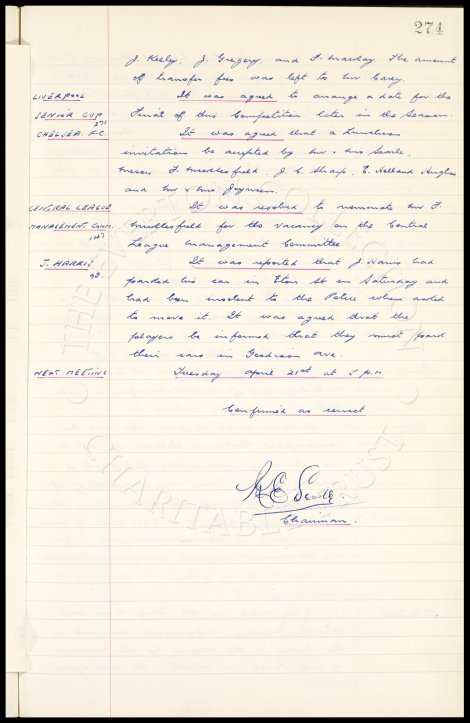 274
J. Keeley, J. Gregory, and F. Mackay. The amount
of transfer fees was left to Mr Carey.
LIVERPOOL It was agreed to arrange a date for the
SENIOR CUP Final of this Competition later in the Season.
271
CHELSEA. F.C. It was agreed that a Luncheon
invitation be accepted by Mr & Mrs Searle,
Messrs F. Micklesfield, J. C. Sharp, E. Holland Hughes
and Mr & Mrs
CENTRAL LEAGUE It was resolved to nominate Mr F.
MANAGEMENT COMM. Micklesfield for the vacancy on the Central
League Management Committee
J. HARRIS It was reported that J. Harris had
98 parked his car in Eton St on Saturday and
had been insolent to the Police when asked
to move it. It was agreed that the
players be informed that they must park
their cars in Goodison Ave.
NEXT MEETING Tuesday April 21st at 5 P.M.
Confirmed as correct
Chairman.
THE EVERTON COLLECTION
CHARITABLE TRUST